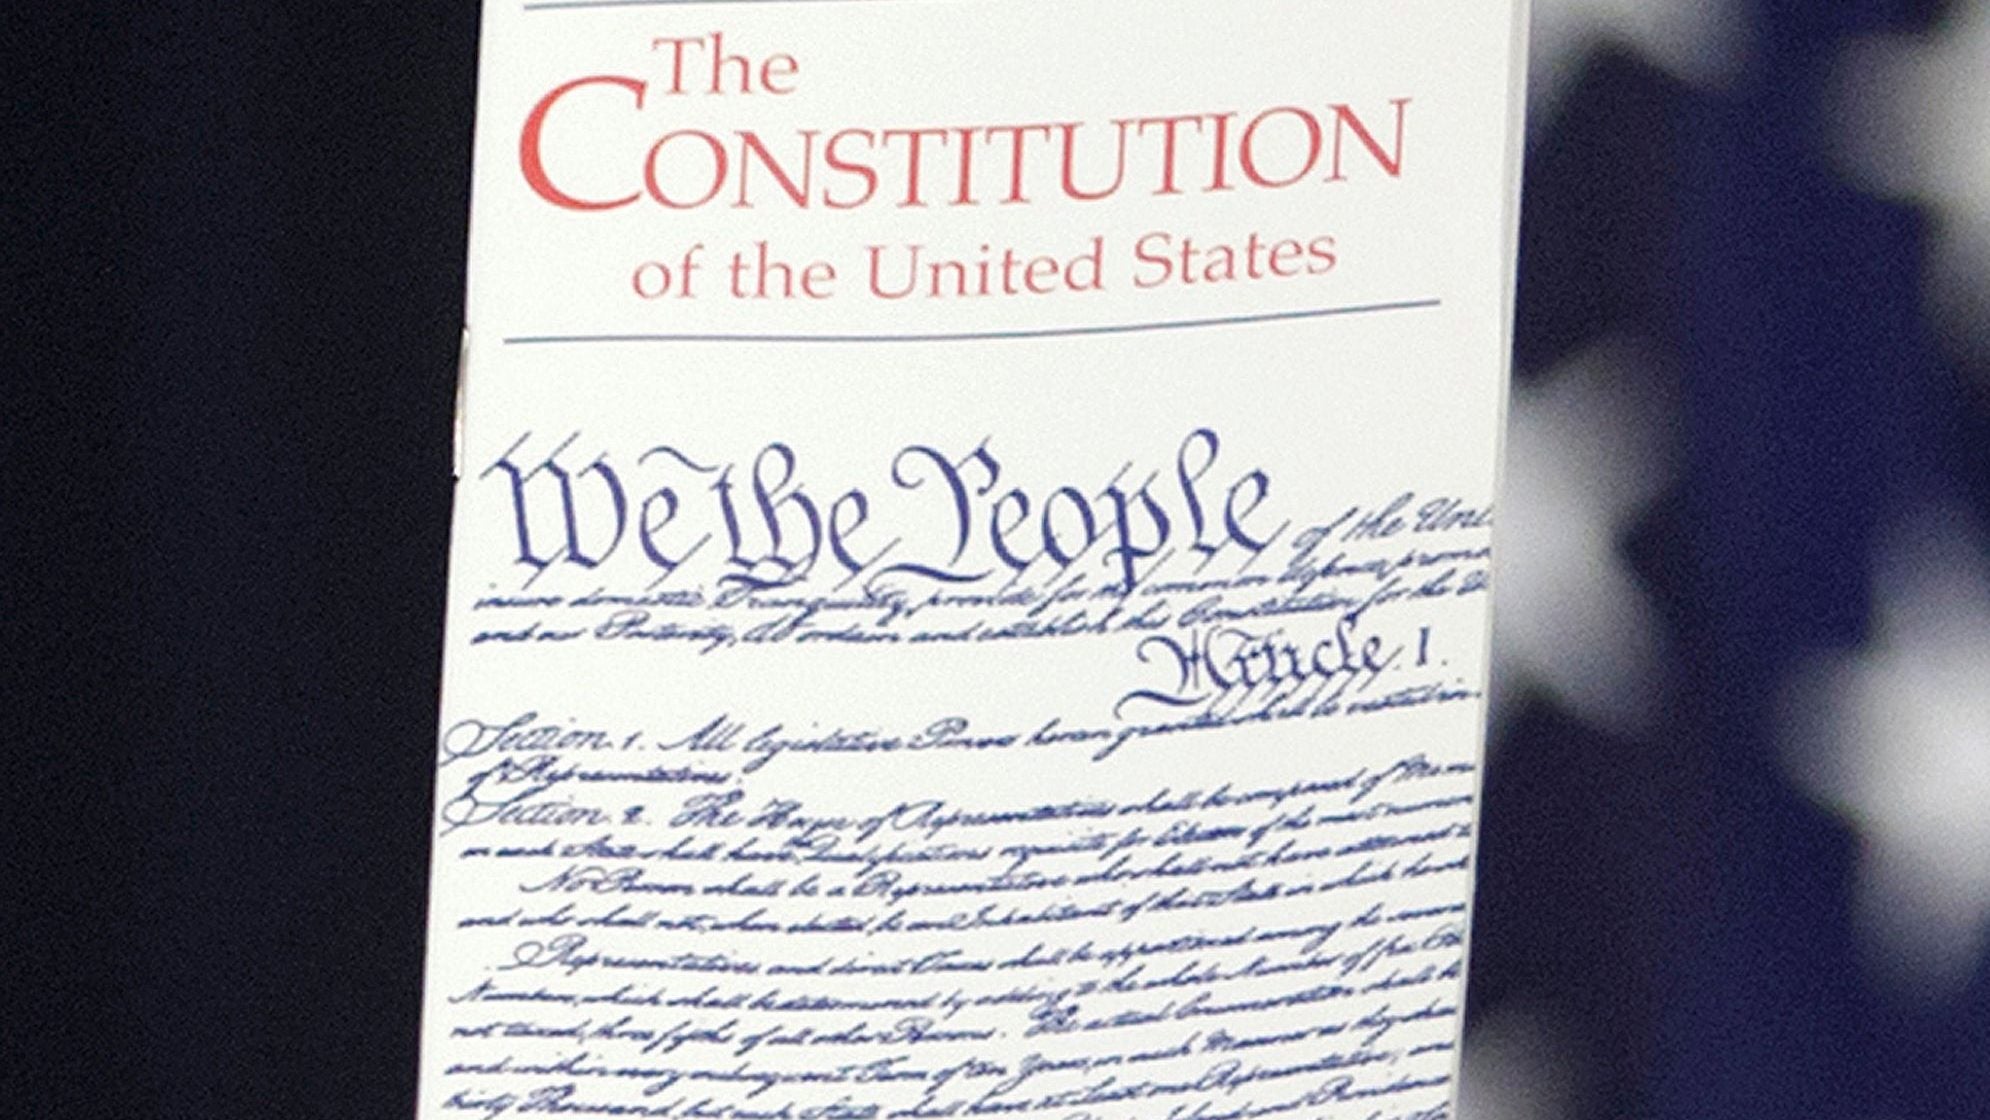 The
CONSTITUTION
of the United States
We the People of the Uni
insure domestic Tranquility, provide for the common defence, promo
and our Posterity, do ordain and establish this Constitution for the U
Article. I.
Section. 1. All legislative Powers herein granted shall be vested in
of Representatives.
Section. 2. The House of Representatives shall be composed of Mem
in each State shall have the Qualifications requisite for Electors of the most numer
No Person shall be a Representative who shall not have attained to
and who shall not, when elected, be an Inhabitant of that State in which he shall
Representatives and direct Taxes shall be apportioned among the several
Numbers, which shall be determined by adding to the whole Number of free Per
not taxed, three fifths of all other Persons. The actual Enumeration shall be
and within every subsequent Term of ten Years, in such Manner as they shall
thirty Thousand, but each State shall have at Least one Representative; and